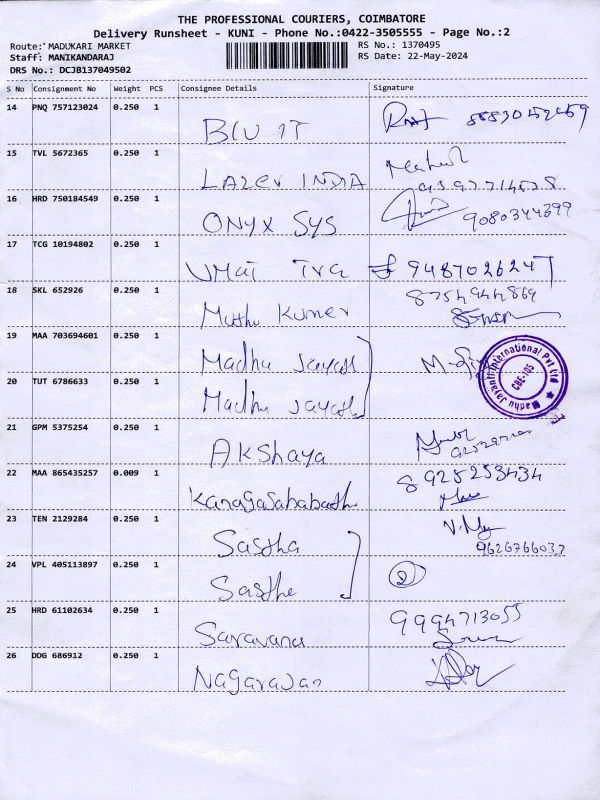 THE PROFESSIONAL COURIERS, COIMBATORE
Delivery Runsheet - KUNI - Phone No.:0422-3505555 - Page No.:2
Route: MADUKARI MARKET RS No.: 1370495
Staff: MANIKANDARAJ RS Date: 22-May-2024
DRS No.: DCJB137049502
S No Consignment No Weight PCS Consignee Details Signature
14 PNQ 757123024 0.250 1
BIU IT
15 TVL 5672365 0.250 1
LAZER INDIA
16 HRD 750184549 0.250 1
ONYX SYS 9080344399
17 TCG 10194802 0.250 1
UMAI 9487026247
18 SKL 652926 0.250 1
Muthu Kumer
19 MAA 703694601 0.250 1
Madhu Jayanti
20 TUT 6786633 0.250 1
Madhu Jayanti
Madhu Jayanti International Pvt Ltd
CBE-105
21 GPM 5375254 0.250 1
AKShaya
22 MAA 865435257 0.009 1
8925253434
Kanagasababathi
23 TEN 2129284 0.250 1
Sastha 9626766037
24 VPL 405113897 0.250 1
Sastha 2
25 HRD 61102634 0.250 1
Saravana 9994713055
26 DDG 686912 0.250 1
Nagarajan